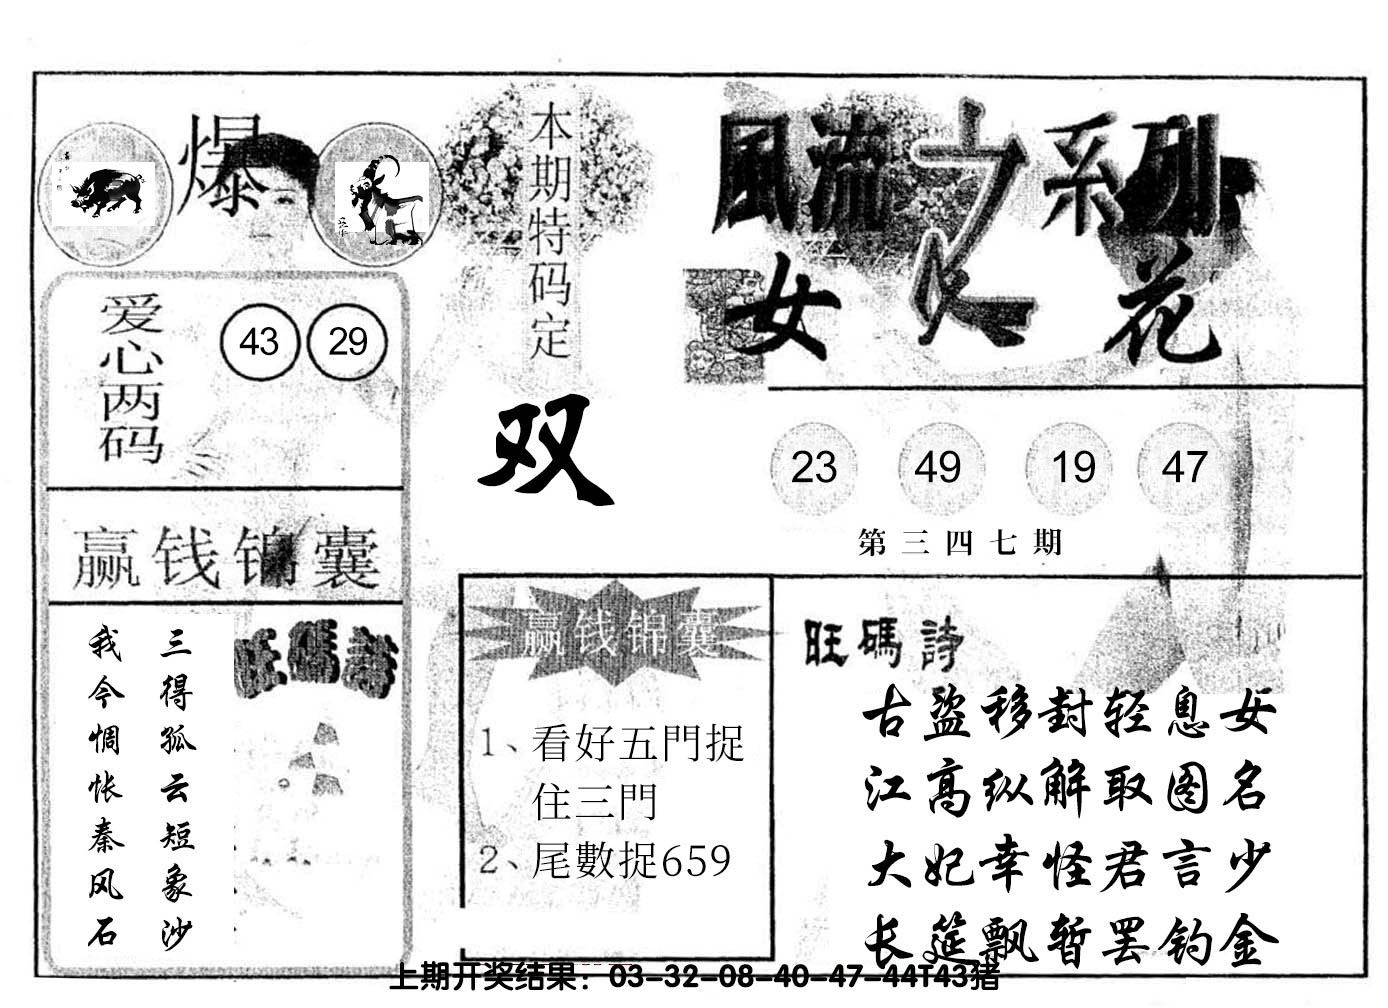 爆
爱心两码
43 29
赢钱锦囊
我今惆怅秦风石
三得孤云短象沙
旺碼詩
本期特码定
双
風流之系列
女人花
23 49 19 47
第三四七期
赢钱锦囊
1、看好五門捉
住三門
2、尾數捉659
旺碼詩
古盜移封轻息女
江高纵解取图名
大妃幸怪君言少
长筵飘暂罢钓金
上期开奖结果：03-32-08-40-47-44T43猪